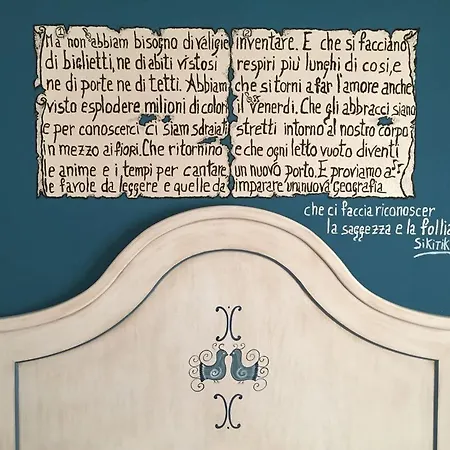 Ma non abbiam bisogno di valigie
di biglietti, ne di abiti vistosi
ne di porte ne di tetti. Abbiam
visto esplodere milioni di colori
e per conoscerci ci siam sdraiati
in mezzo ai fiori. Che ritornino
le anime e i tempi per cantare
e favole da leggere e quelle da
inventare. E che si facciano
respiri più lunghi di così, e
che si torni a far l'amore anche
il venerdi. Che gli abbracci siano
stretti intorno al nostro corpo
e che ogni letto vuoto diventi
un nuovo porto. E proviamo a
imparare una nuova geografia
che ci faccia riconoscer
la saggezza e la follia
SIKITIK